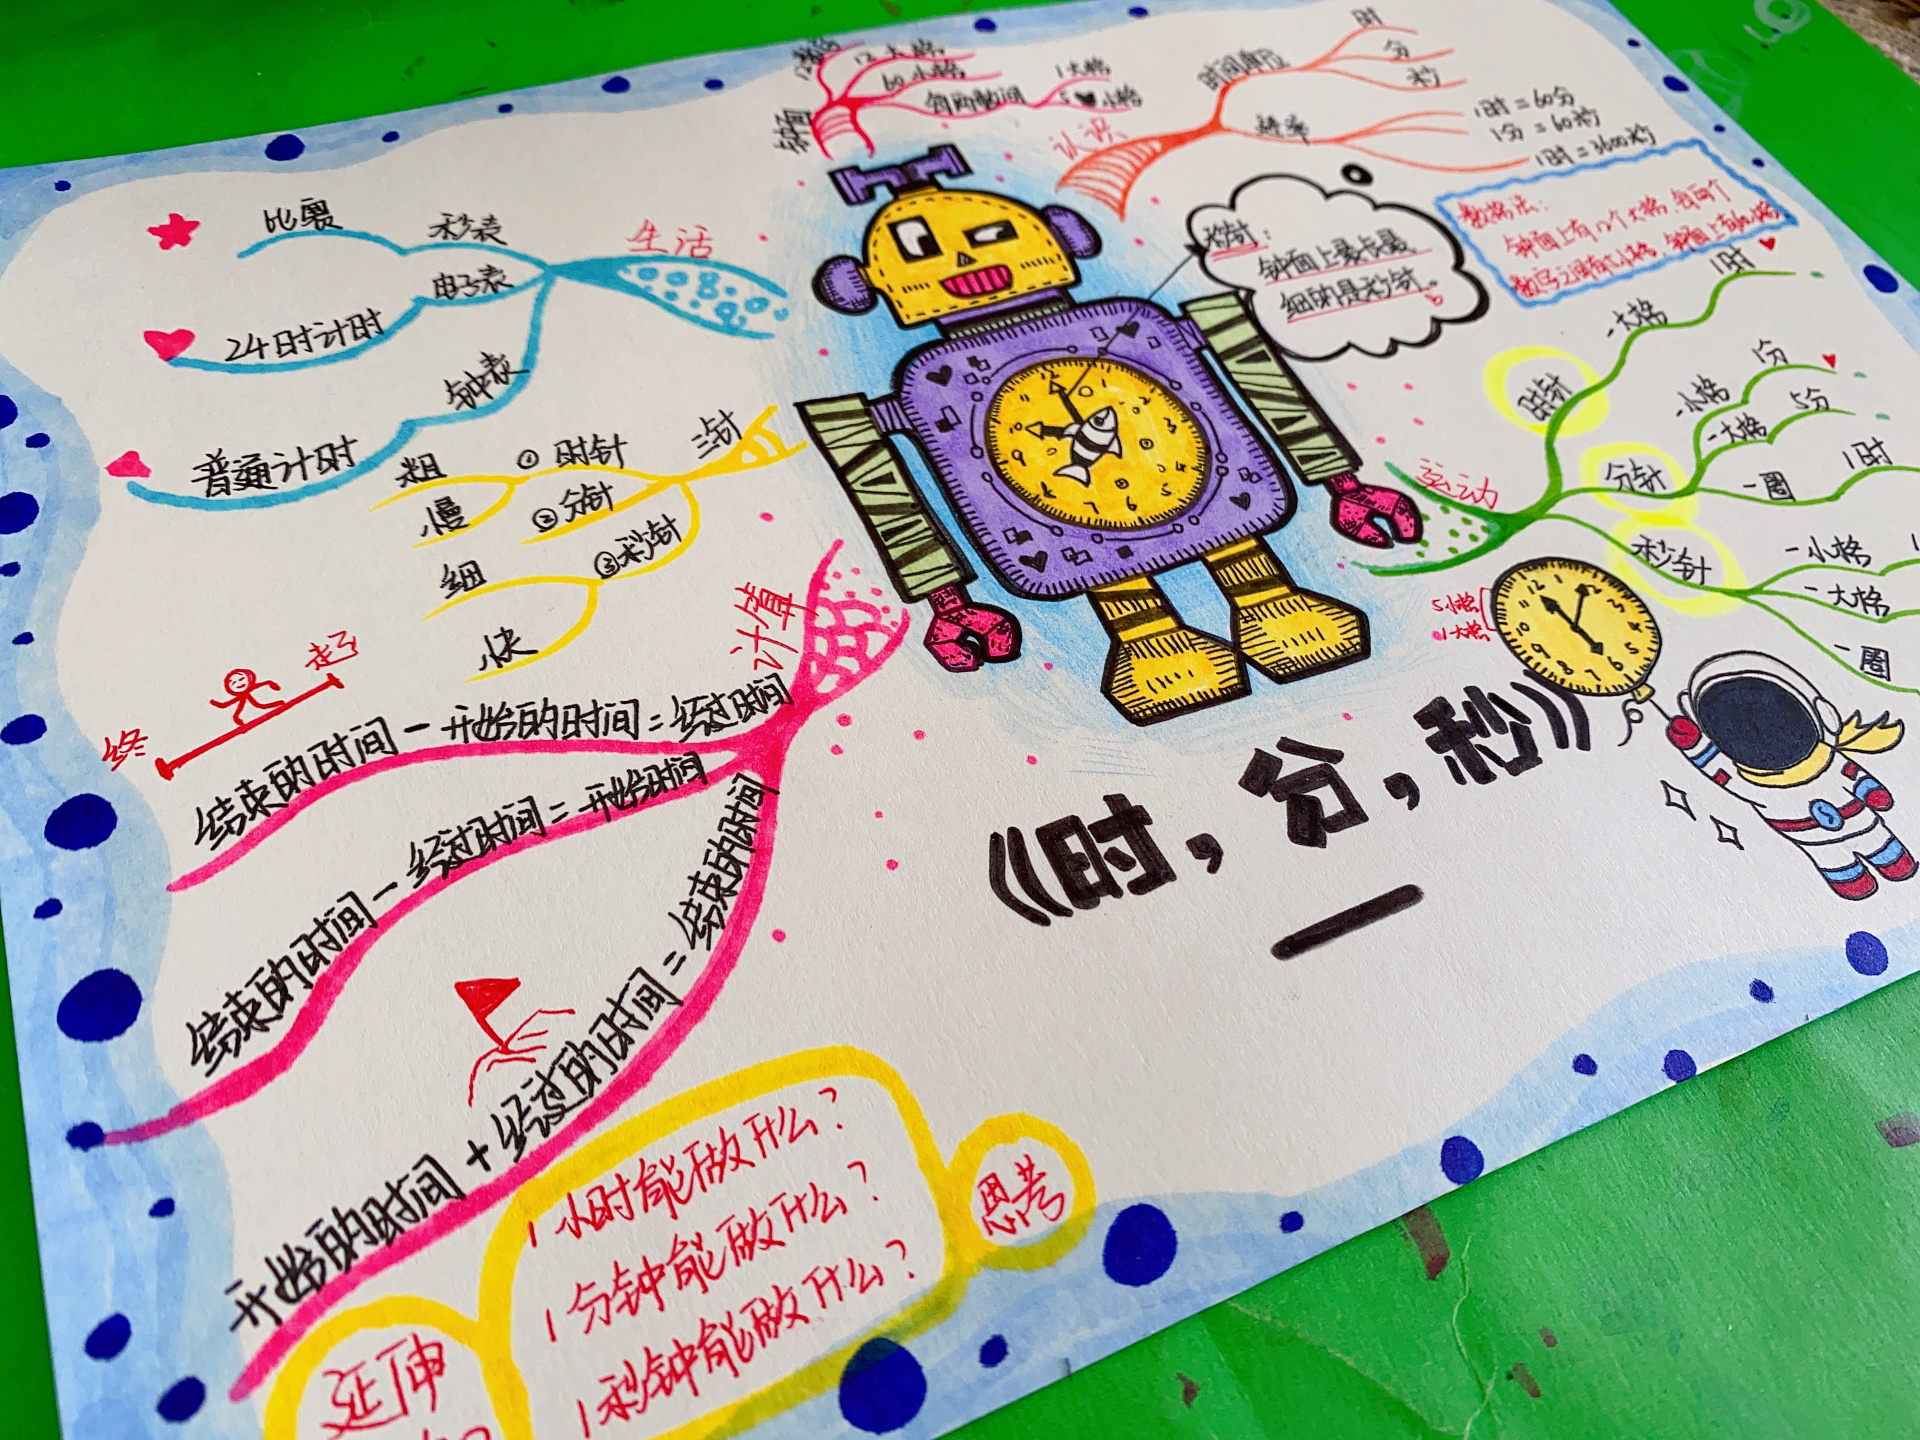 钟面
12大格
60小格
每两数间
1大格
5小格
认识
时间单位
时
分
秒
进率
1时=60分
1分=60秒
1时=3600秒
秒针:
钟面上最长最
细的是秒针。
数格法:
钟面上有12个大格,每两个
生活
秒表
比赛
电子表
24时计时
钟表
普通计时
三针
①时针
粗
慢
②分针
③秒针
细
快
运动
时针
一大格
1时
分针
一小格
1分
一大格
5分
一圈
1时
秒针
一小格
一大格
一圈
5小格
1大格
12
1
2
3
4
5
6
7
8
9
10
计算
起
终
结束的时间-开始的时间=经过时间
结束的时间-经过时间=开始时间
开始的时间+经过的时间=结束的时间
《时,分,秒》
思考
1小时能做什么?
1分钟能做什么?
1秒钟能做什么?
延伸